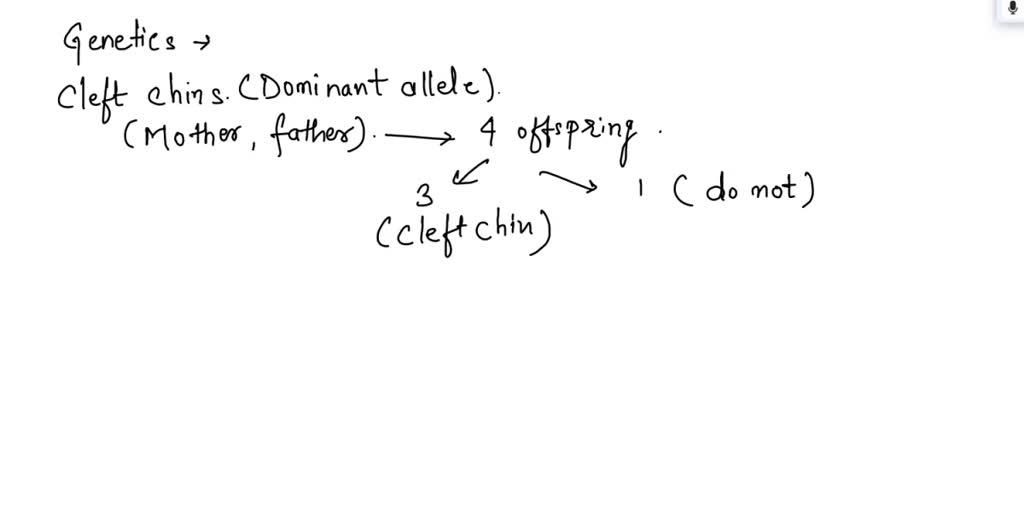 Genetics →
Cleft chins. (Dominant allele).
(Mother, father). → 4 offspring.
3 1 (do not)
(cleft chin)